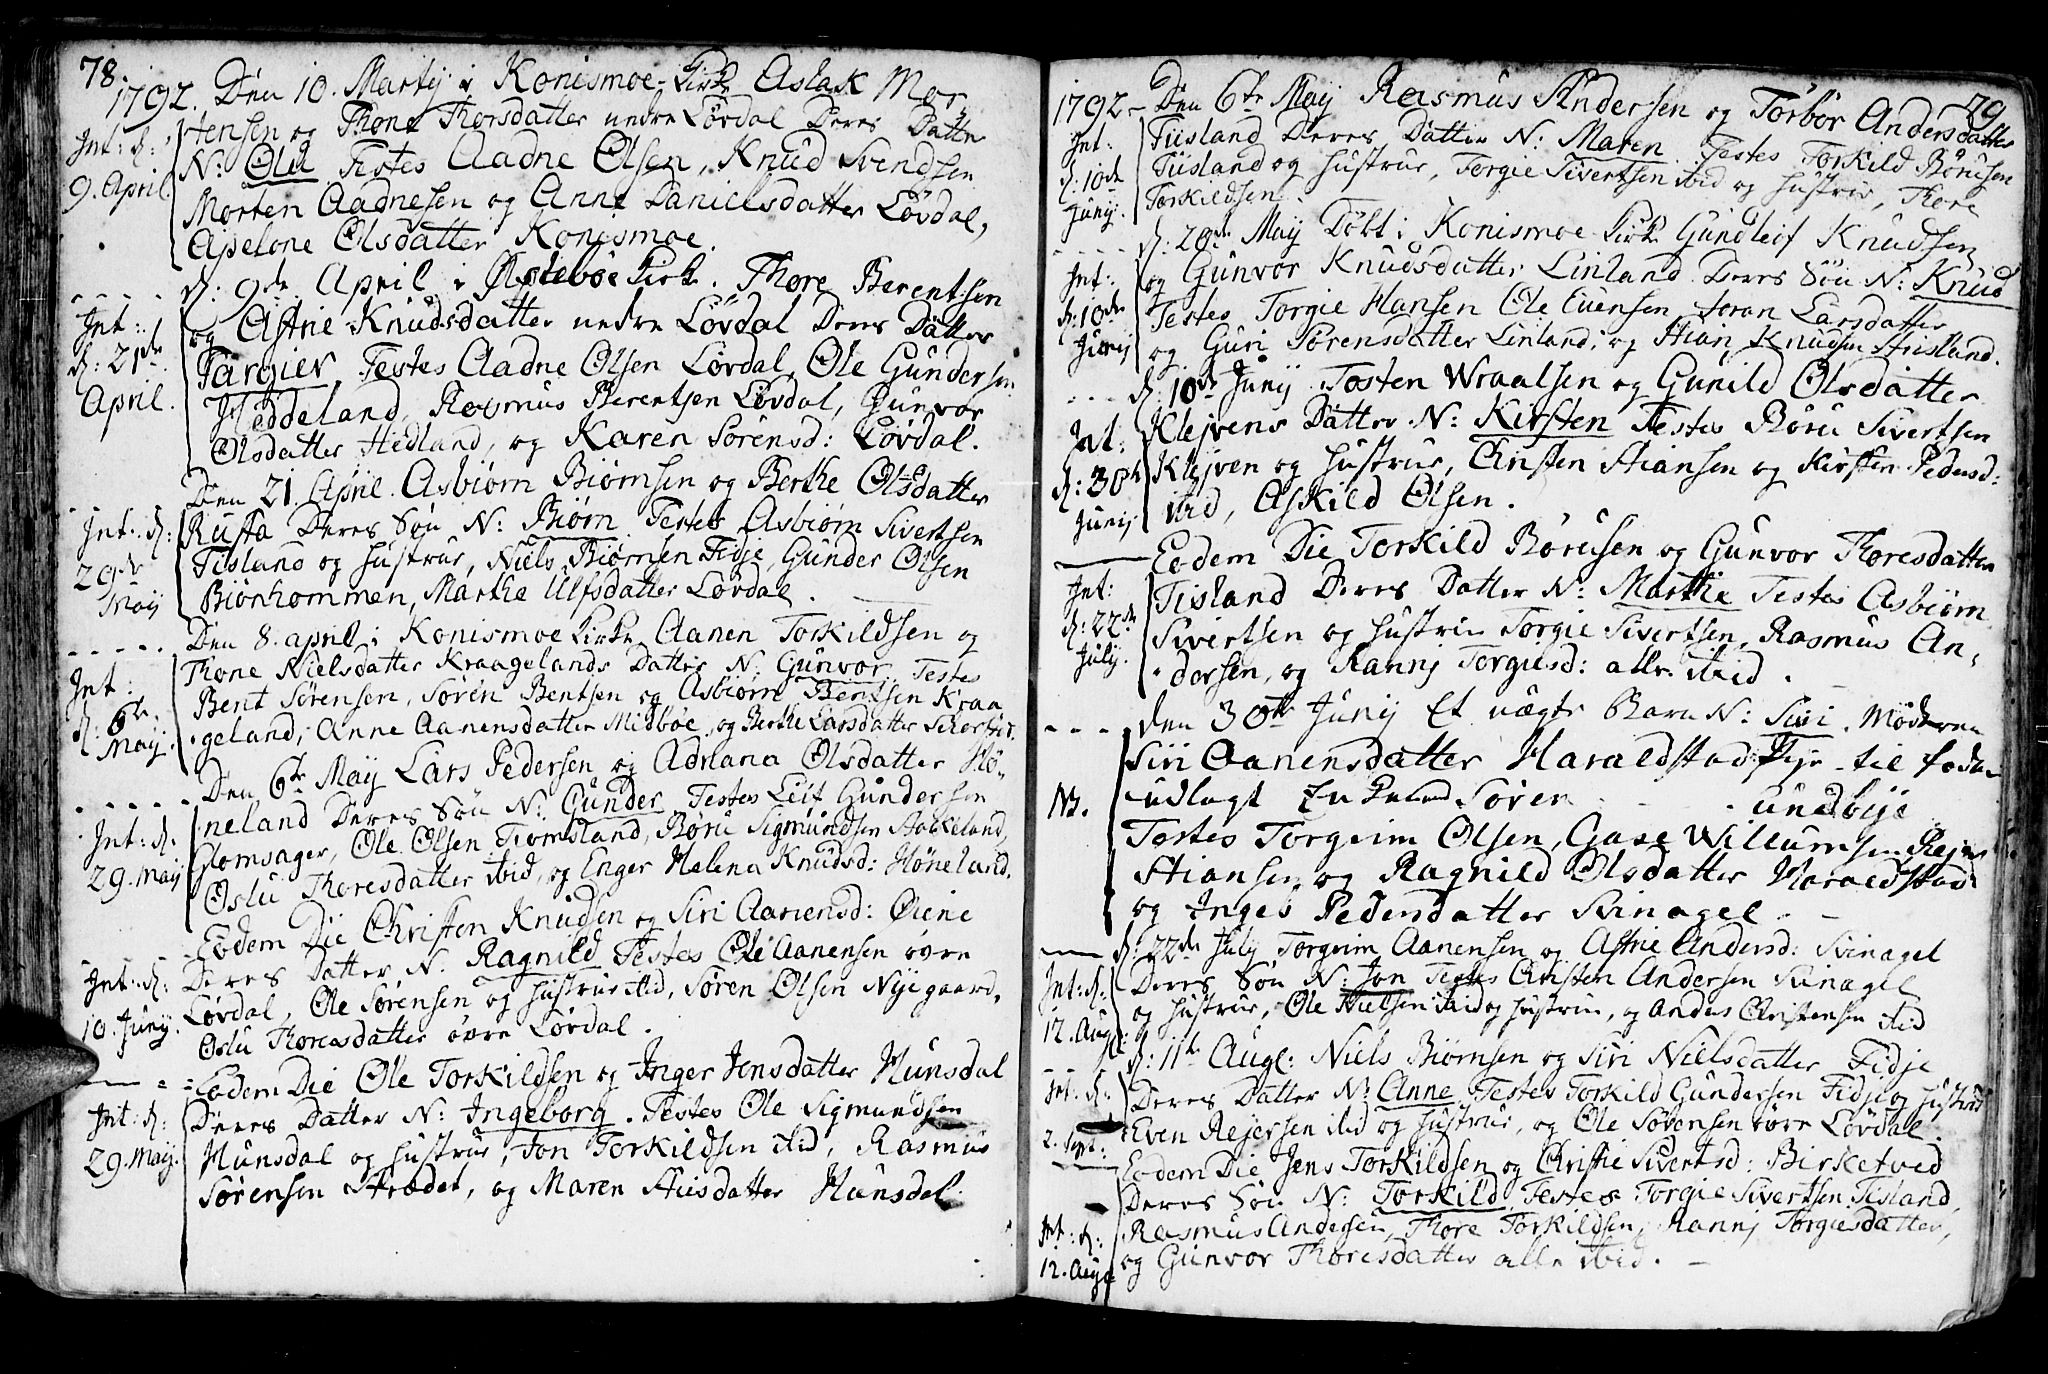 78.
1792. Den 10. Martij i Konismoe Kirke Aslak Mor
Int: d:
9. April
tensen og Thone Thorsdatter nedre Løvdal Deres Datter
N: Olu Testes Aadne Olsen, Knud Svendsen
Morten Aadnesen og Anne Danielsdatter Løvdal,
Apelone Olsdatter Konismoe.
d: 9de April i Øslebøe Kirk. Thore Berentsen
Int:
d: 21de
April.
og Astrie Knudsdatter nedre Løvdal Deres Datter
Targier Testes Aadne Olsen Løvdal, Ole Gundersen
Heddeland, Rasmus Berentsen Løvdal, Gunvor
Olsdatter Hedland, og Karen Sørensd: Løvdal.
Den 21. April. Asbiørn Biørnsen og Berthe Olsdatter
Int: d:
29de
May
Rusta Deres Søn N: Biørn Testes Asbiørn Sivertsen
Tisland og Hustrue, Niels Biørnsen Fidje, Gunder Olsen
Biønhommen, Marthe Ulfsdatter Løvdal.
Den 8. april i Konismoe Kirke Aanen Torkildsen og
Int:
d: 6te
May.
Thone Nielsdatter Kraagelands Datter N: Gunvor Testes
Bent Sørensen, Søren Bentsen og Asbiørn Bentsen Kraa
geland, Anne Aanensdatter Midbøe, og Berthe Larsdatter
Den 6te May Lars Pedersen og Adriana Olsdatter Hø-
Int: d:
29. May
neland Deres Søn N: Gunder Testes Leif Gundersen
Glomsager, Ole Olsen Tiomsland, Børu Sigmundsen Stokkeland,
Oslu Thoresdatter ibid, og Enger Helena Knudsd: Høneland.
Eodem Die Christen Knudsen og Siri Aanensd: Øiene
Int: d:
10. Junij.
Deres Datter N: Ragnild Testes Ole Aanensen øvre
Løvdal, Ole Sørensen og Hustrue ibid, Søren Olsen Nyegaard,
Oslu Thoresdatter øvre Løvdal.
Eodem Die Ole Torkildsen og Inger Jensdatter Hunsdal
Int: d:
29. May.
Deres Datter N: Ingeborg. Testes Ole Sigmundsen
Hunsdal og Hustrue, Jon Torkildsen ibid, Rasmus
Sørensen Strædet, og Maren Stiisdatter Hunsdal
79
1792 - Den 6te May Rasmus Andersen og Torbør Andersdatter
Int:
d: 10de
Junij.
Tiisland Deres Datter N: Maren Testes Torkild Børusen
Tiisland og Hustrue, Torgie Sivertsen ibid og Hustrue, Thore
Torkildsen
d: 20de May Døbt i Konismoe Kirke Gundleif Knudsen
Int:
d: 10de
Junij
og Gunvor Knudsdatter Linland Deres Søn N: Knud
Testes Torgie Hansen Ole Evensen, Joran Larsdatter
og Guri Sørensdatter Linland, og Stian Knudsen
d: 10de Junij Tosten Wraalsen og Gunild Olsdatter
Int:
d: 30te
Junij
Klejvens Datter N: Kirsten Testes Børu Sivertsen
Klejven og Hustrue, Christen Stiansen og Kirsten Pedersd:
ibid, Askild Olsen.
Eodem Die Torkild Børusen og Gunvor Thoresdatter
Int:
d: 22de
Julij.
Tisland Deres Datter N: Marthe Testes Asbiørn
Sivertsen og Hustrue Torgie Sivertsen, Rasmus An-
dersen, og Rannj Torgiesd: alle ibid.
den 30te Junij Et uægte Barn N: Siri. Moderen
NB.
Siri Aanensdatter Haraldstad Pige til fader
udlagt Søren
Testes Torgrim Olsen, Willumsen
Stiansen og Ragnild Olsdatter Haraldstad
og Ingeb Pedersdatter Svinagel
d: 22de July Torgrim Aanensen og Astrie Andersd: Svinagel
Int: d:
12. Aug:
Deres Søn N: Jon Testes Christen Andersen Svinagel
og Hustrue, Ole Nielsen ibid og Hustrue, og Anders Christensen ibid
d: 11te Augl: Niels Biørnsen og Siri Nielsdatter Fidje
Int: d:
2. Sept:
Deres Datter N: Anne Testes Torkild Gundersen Fidje og Hustrue
Even Rejersen ibid og Hustrue, og Ole Sørensen øvre Løvdal.
Eodem Die Jens Torkildsen og Christie Sivertsd: Birketved
Int: d:
12. Aug
Deres Søn N: Torkild Testes Torgie Sivertsen Tisland,
Rasmus Andersen, Thore Torkildsen, Rannj Torgiesdatter,
og Gunvor Thoresdatter alle ibid.